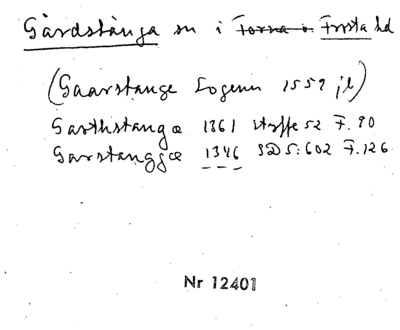 Gårdstånga sn i Torna o. Frosta hd
(Gaarstange Sogenn 1559 jb)
Garthstangæ 1361 Styffe 52 F. 90
Garstanggæ 1346 SD 5:602 F. 126
Nr 12401